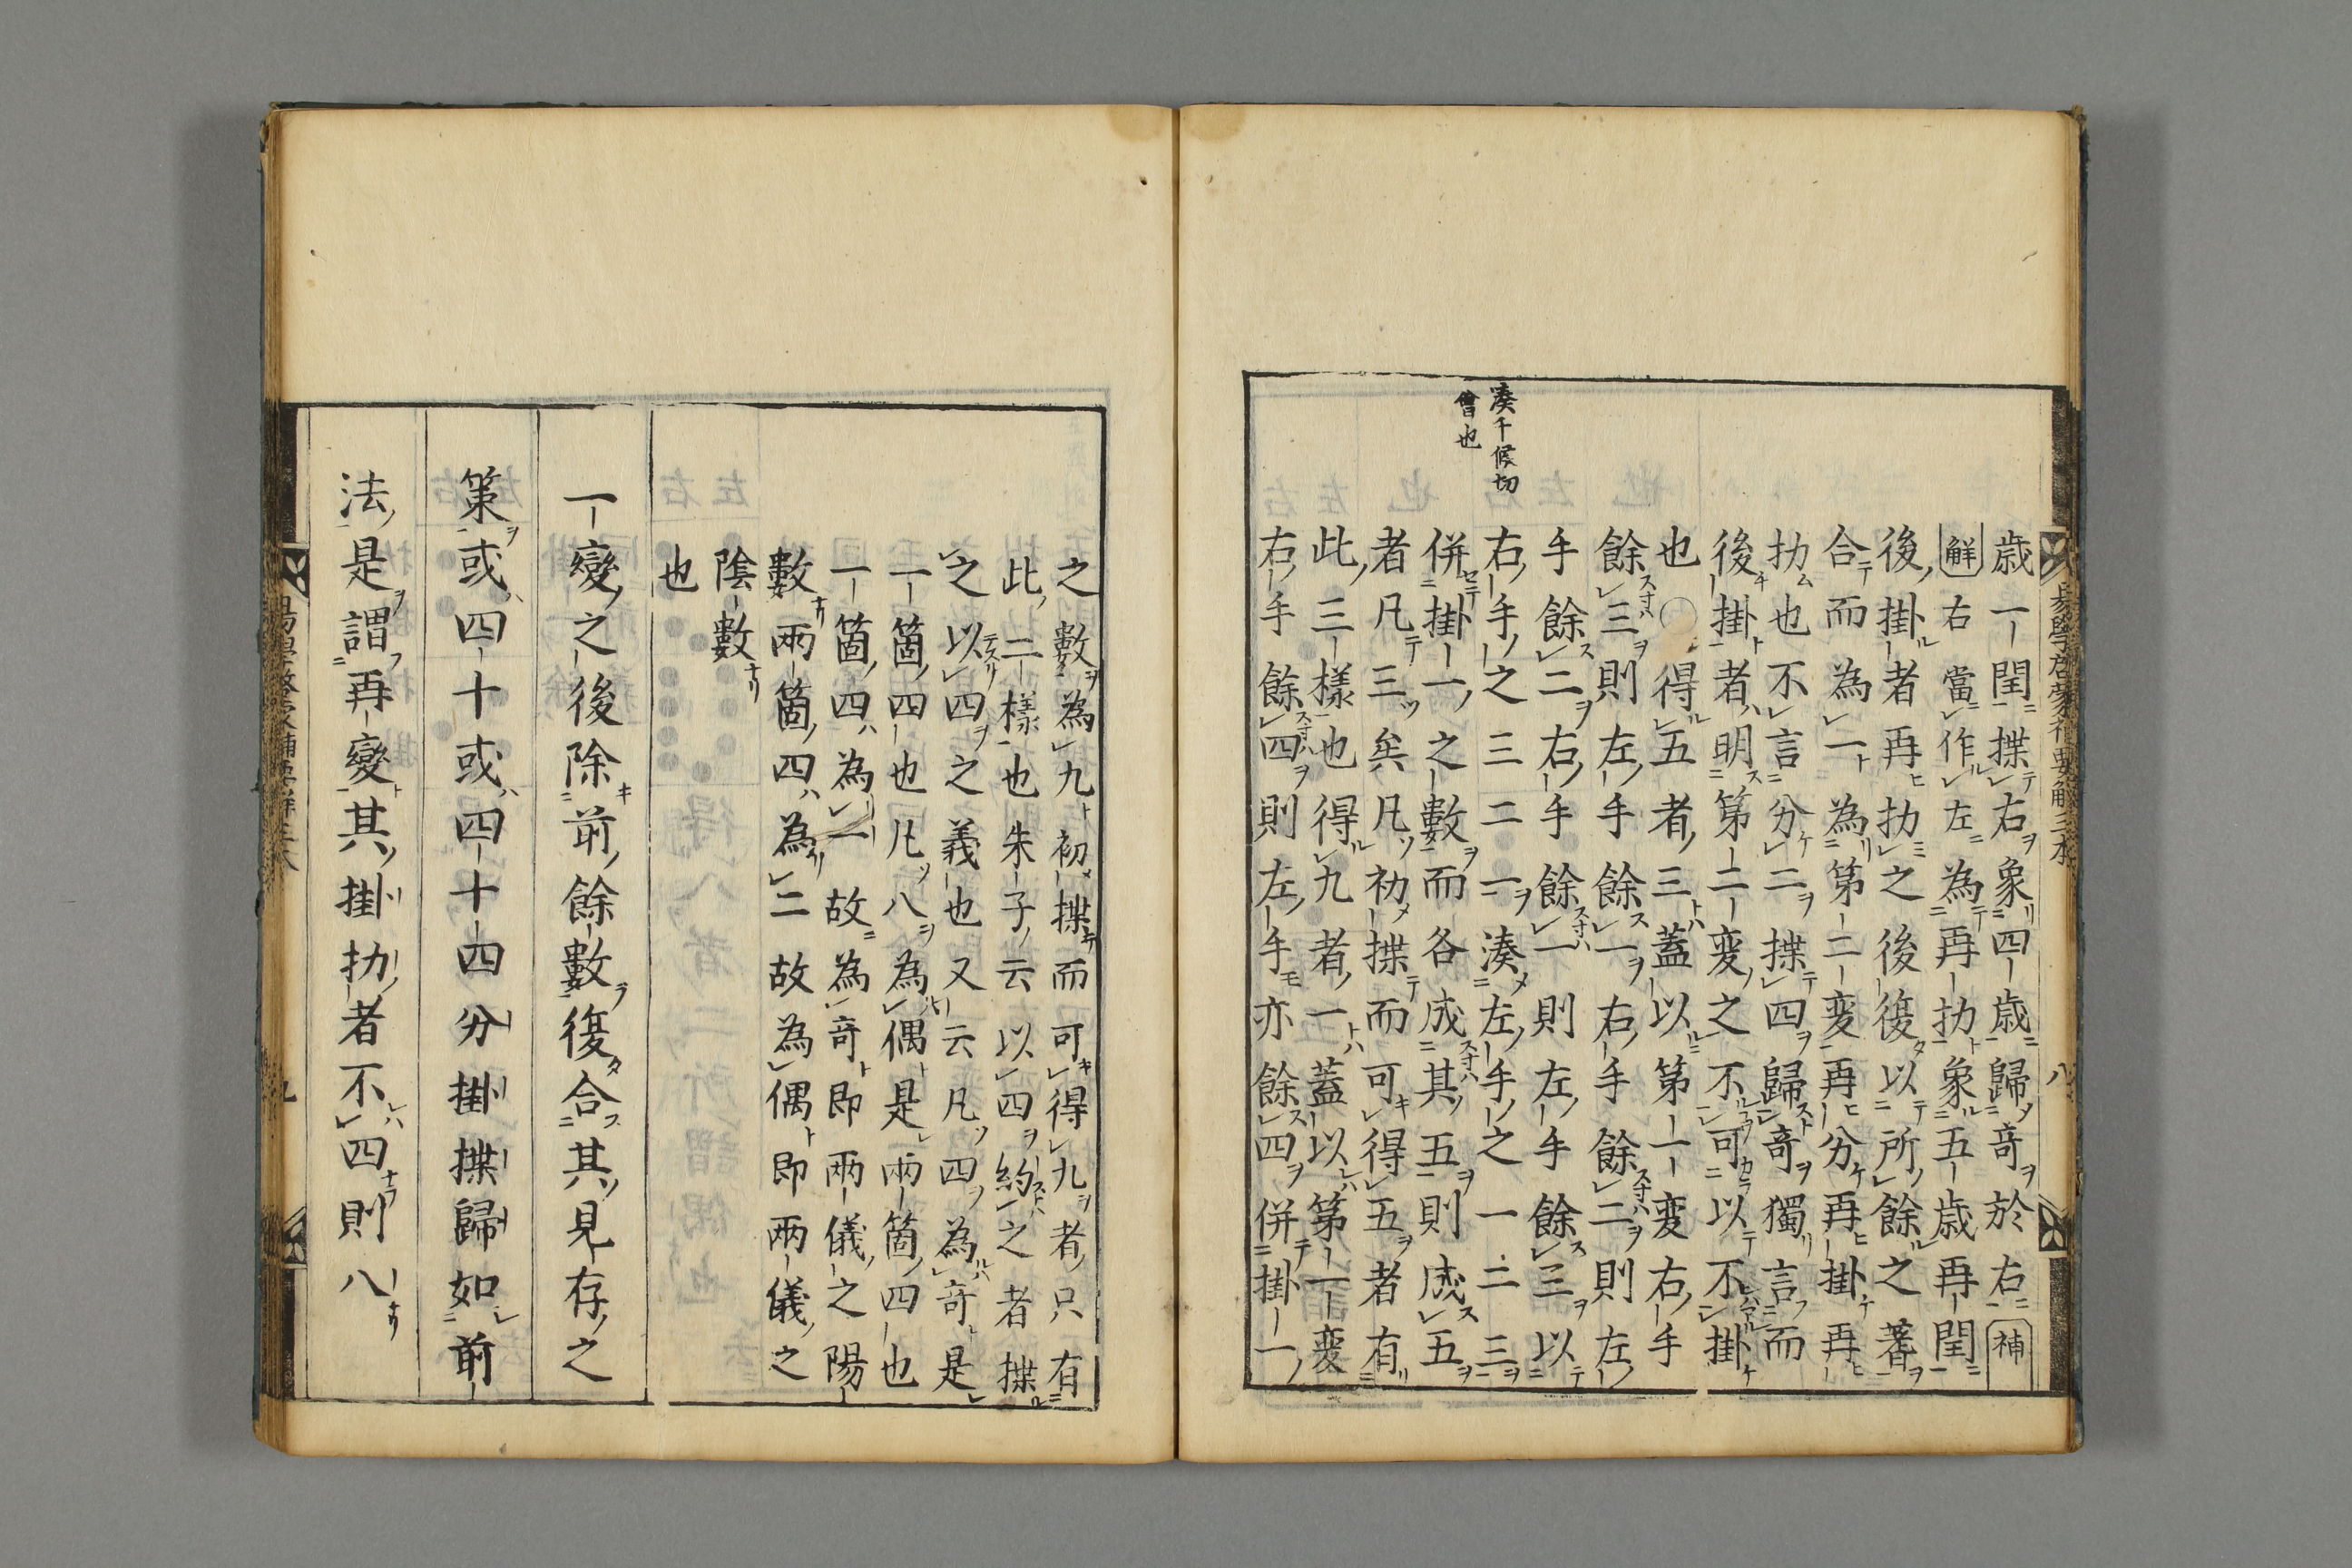 歳一閏揲右象四歳歸奇於右補
解右當作左為再扐象五歳再閏
後掛者再扐之後復以所餘之蓍
合而為一為第二変再分再掛再
扐也不言分二揲四歸奇獨言而
後掛者明第二変之不可以不掛
也○得五者三蓋以第一変右手
餘三則左手餘一右手餘二則左
手餘二右手餘一則左手餘三以
右手之三二一湊左手之一二三
併掛一之數而各成其五則成五
者凡三矣凡初揲而可得五者有
此三樣也得九者一蓋以第一変
右手餘四則左手亦餘四併掛一
湊千候切
會也
之數為九初揲而可得九者只有
此二樣也朱子云以四約之者揲
之以四之義也又云凡四為奇是
一箇四也凡八為偶是兩箇四也
一箇四為一故為奇即兩儀之陽
數兩箇四為二故為偶即兩儀之
陰數
也
一變之後除前餘數復合其見存之
策或四十或四十四分掛揲歸如前
法是謂再變其掛扐者不四則八